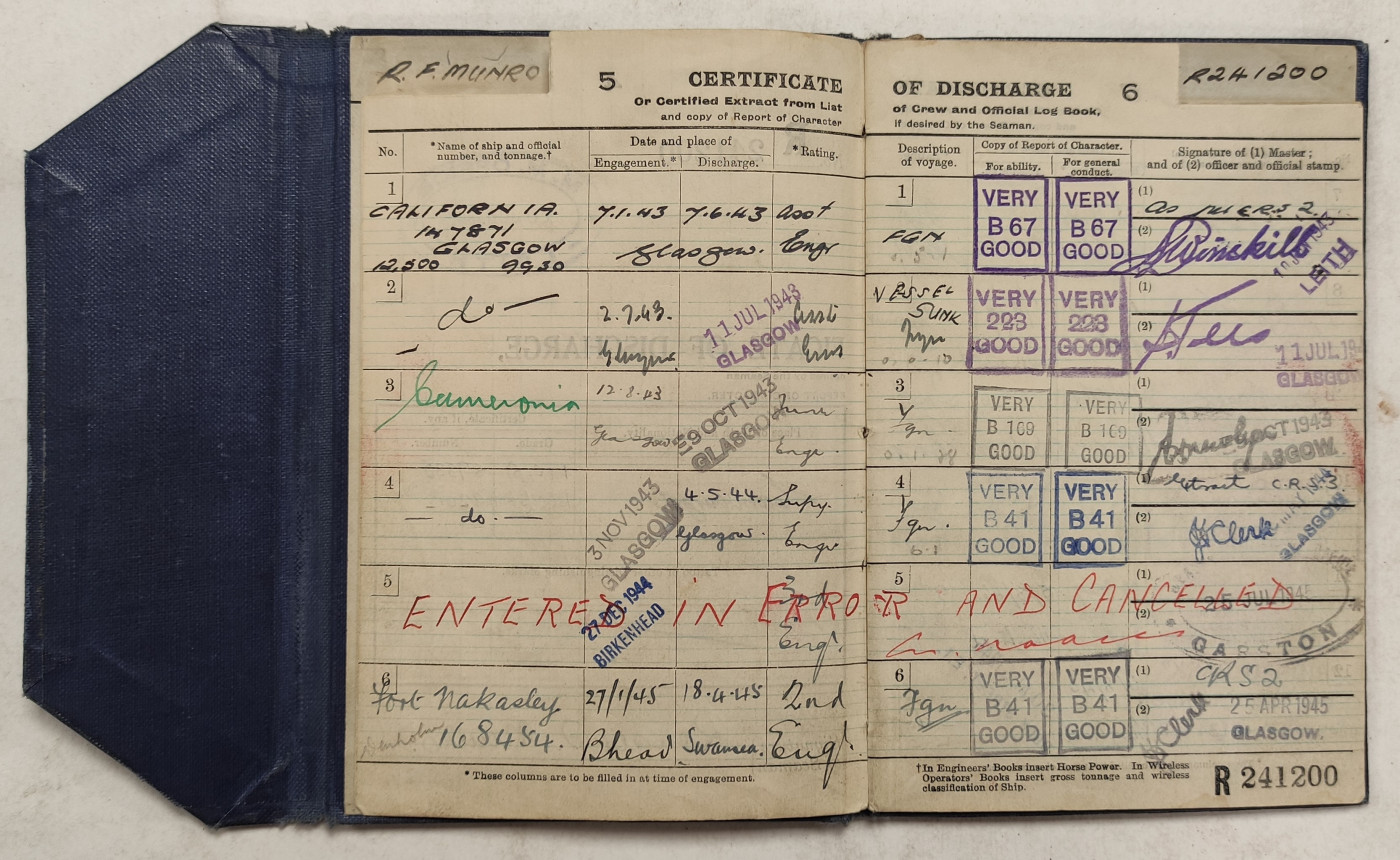 R. F. MUNRO
5 CERTIFICATE
Or Certified Extract from List
and copy of Report of Character
No.
*Name of ship and official number, and tonnage.†
Date and place of
Engagement.* Discharge.
*Rating.
1
CALIFORNIA.
147871
GLASGOW
12,500 9930
7.1.43 7.6.43 Asst
Glasgow. Engr
2
do —
2.7.43.
11 JUL 1943
GLASGOW
Asst
3
Cameronia
12.8.43
Glasgow
29 OCT 1943
GLASGOW
Junr
Engr.
4
— do. —
3 NOV 1943
GLASGOW
4.5.44.
Glasgow.
Engr
5
ENTERED IN ERROR AND CANCELLED
27 DEC 1944
BIRKENHEAD
3rd
Eng.
6
Fort Nakasley
168454.
27/1/45 18.4.45 2nd
Bhead Swansea. Eng.
* These columns are to be filled in at time of engagement.
OF DISCHARGE 6
R241200
of Crew and Official Log Book,
if desired by the Seaman.
Description of voyage.
Copy of Report of Character.
For ability. For general conduct.
Signature of (1) Master;
and of (2) officer and official stamp.
1
FGN
VERY VERY
B 67 B 67
GOOD GOOD
(1) as per CRS 2.
(2)
1943
LEITH
2
VESSEL
SUNK
Fgn
VERY VERY
223 223
GOOD GOOD
(1)
(2)
11 JUL 19
GLASGOW
3
Fgn.
VERY VERY
B 109 B 109
GOOD GOOD
(1)
(2)
OCT 1943
GLASGOW.
4
Fgn.
6.1
VERY VERY
B 41 B 41
GOOD GOOD
(1) Extract C.R.S. 3.
(2) Clerk
GLASGOW
5
(1)
(2)
25 JUL 1945
GARSTON
6
Fgn
VERY VERY
B 41 B 41
GOOD GOOD
(1) CRS2
(2) Clerk
25 APR 1945
GLASGOW.
†In Engineers' Books insert Horse Power. In Wireless
Operators' Books insert gross tonnage and wireless
classification of Ship.
R 241200